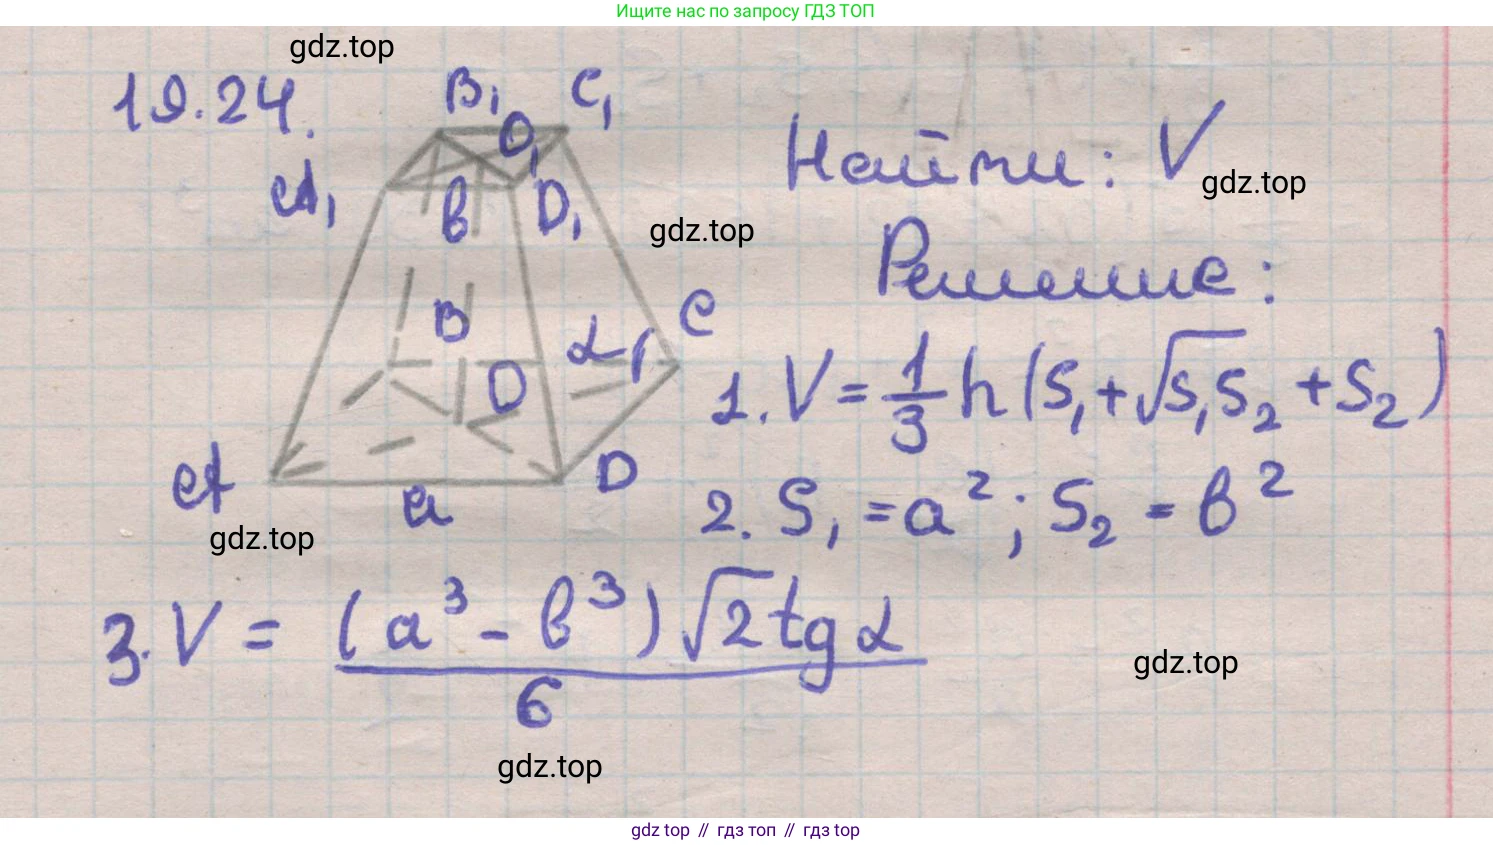 Ищите нас по запросу ГДЗ ТОП
gdz.top
19.24.
B₁ C₁
O₁
A₁
b D₁
Найти: V
gdz.top
gdz.top
Решение:
B α C
O
1. V = 1/3 h (S₁ + √S₁S₂ + S₂)
A a D
2. S₁ = a²; S₂ = b²
gdz.top
3. V = (a³ - b³) √2 tg α / 6
gdz.top
gdz.top
gdz top // гдз топ // гдз top